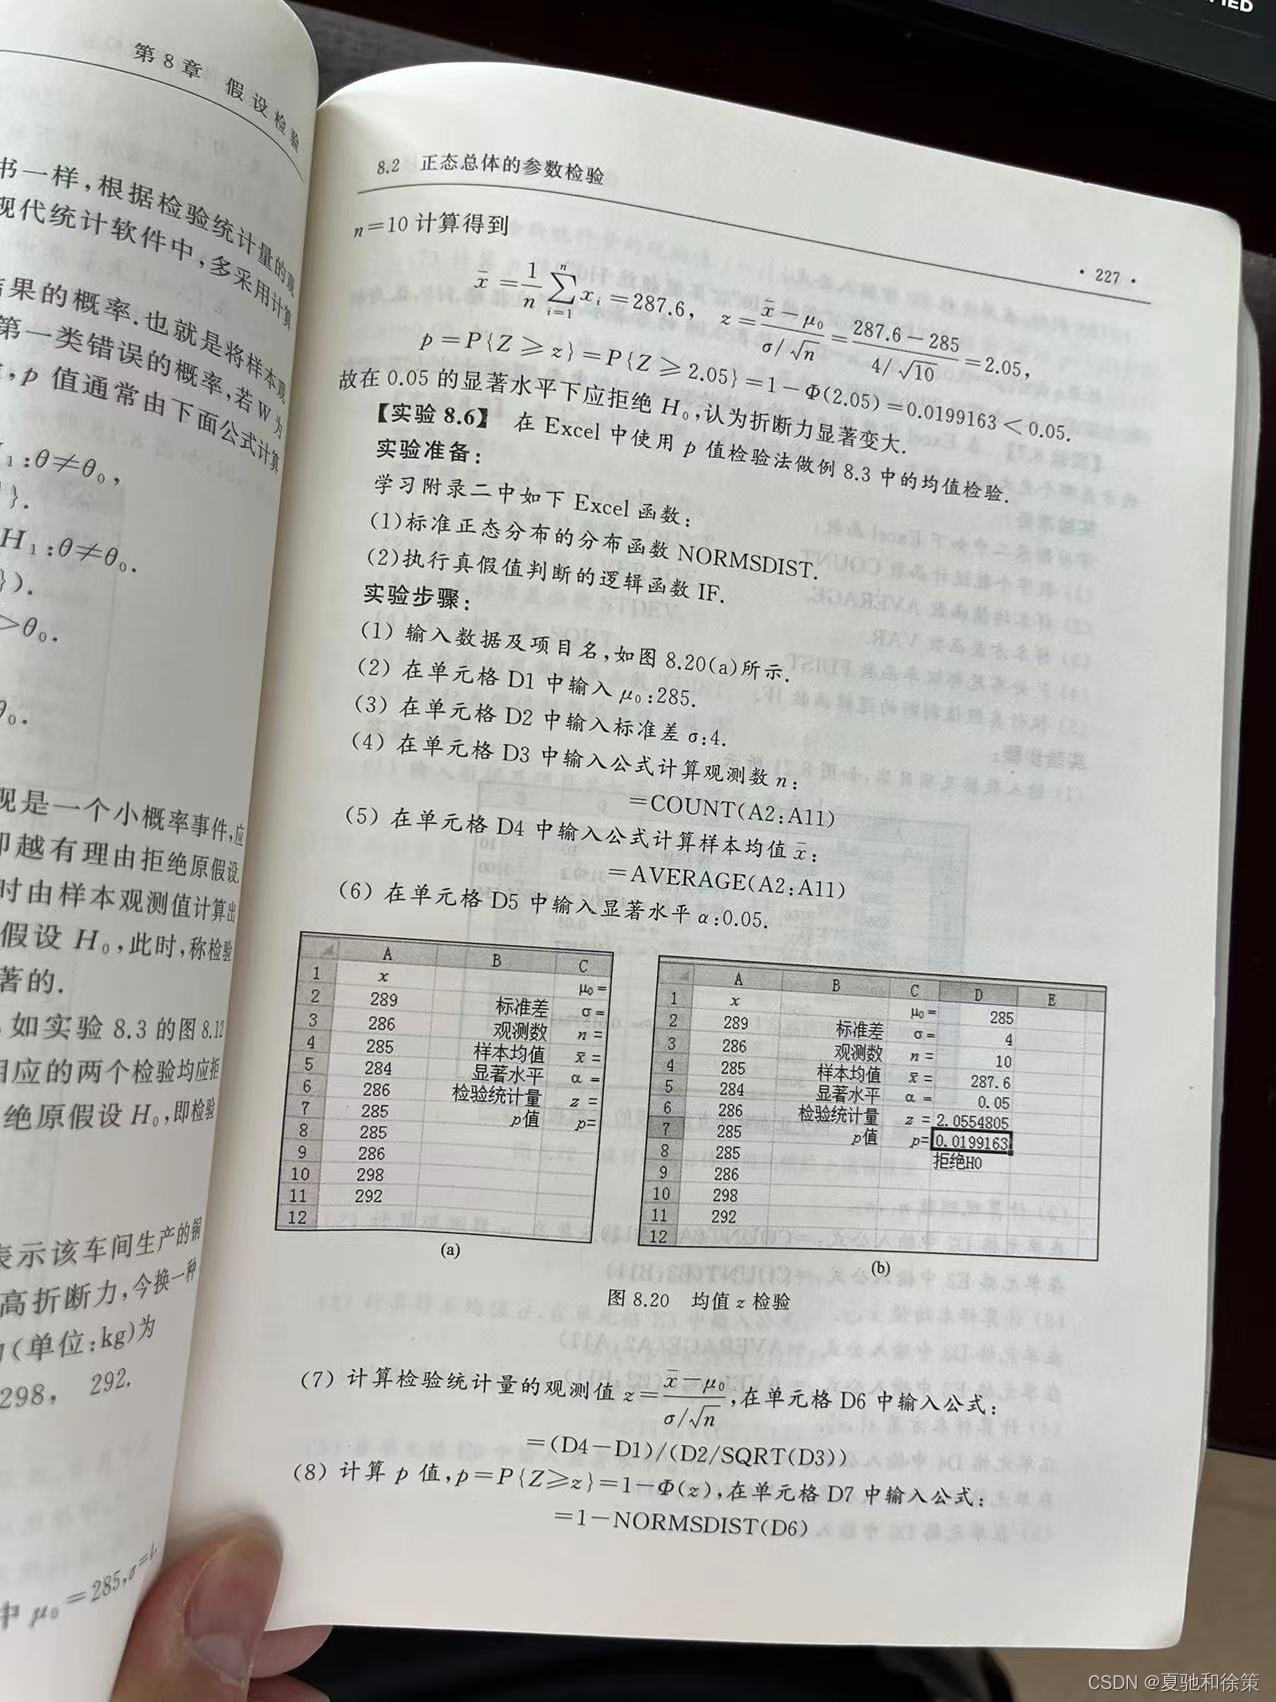 第8章 假设检验
书一样,根据检验统计量的观
现代统计软件中,多采用计算
结果的概率.也就是将样本观
第一类错误的概率,若W为
,p 值通常由下面公式计算
₁:θ≠θ₀,
}.
H₁:θ≠θ₀.
}).
>θ₀.
θ₀.
现是一个小概率事件,应
即越有理由拒绝原假设.
时由样本观测值计算出
假设 H₀,此时,称检验
著的.
如实验 8.3 的图 8.12
相应的两个检验均应拒
绝原假设 H₀,即检验
表示该车间生产的铜
高折断力,今换一种
(单位:kg)为
298, 292.
中 μ₀=285,σ=4.
8.2 正态总体的参数检验
· 227 ·
n=10 计算得到
x̄=1/n ∑ᵢ₌₁ⁿ xᵢ=287.6, z=(x̄-μ₀)/(σ/√n)=(287.6-285)/(4/√10)=2.05,
p=P{Z≥z}=P{Z≥2.05}=1-Φ(2.05)=0.0199163<0.05.
故在 0.05 的显著水平下应拒绝 H₀,认为折断力显著变大.
【实验 8.6】 在 Excel 中使用 p 值检验法做例 8.3 中的均值检验.
实验准备:
学习附录二中如下 Excel 函数:
(1)标准正态分布的分布函数 NORMSDIST.
(2)执行真假值判断的逻辑函数 IF.
实验步骤:
(1) 输入数据及项目名,如图 8.20(a)所示.
(2) 在单元格 D1 中输入 μ₀:285.
(3) 在单元格 D2 中输入标准差 σ:4.
(4) 在单元格 D3 中输入公式计算观测数 n:
=COUNT(A2:A11)
(5) 在单元格 D4 中输入公式计算样本均值 x̄:
=AVERAGE(A2:A11)
(6) 在单元格 D5 中输入显著水平 α:0.05.
A B C
1 x μ₀=
2 289 标准差 σ=
3 286 观测数 n=
4 285 样本均值 x̄=
5 284 显著水平 α=
6 286 检验统计量 z=
7 285 p值 p=
8 285
9 286
10 298
11 292
12
(a)
A B C D E
1 x μ₀= 285
2 289 标准差 σ= 4
3 286 观测数 n= 10
4 285 样本均值 x̄= 287.6
5 284 显著水平 α= 0.05
6 286 检验统计量 z= 2.0554805
7 285 p值 p= 0.0199163
8 285 拒绝H0
9 286
10 298
11 292
12
(b)
图 8.20 均值 z 检验
(7) 计算检验统计量的观测值 z=(x̄-μ₀)/(σ/√n),在单元格 D6 中输入公式:
=(D4-D1)/(D2/SQRT(D3))
(8) 计算 p 值,p=P{Z≥z}=1-Φ(z),在单元格 D7 中输入公式:
=1-NORMSDIST(D6)
CSDN @夏驰和徐策